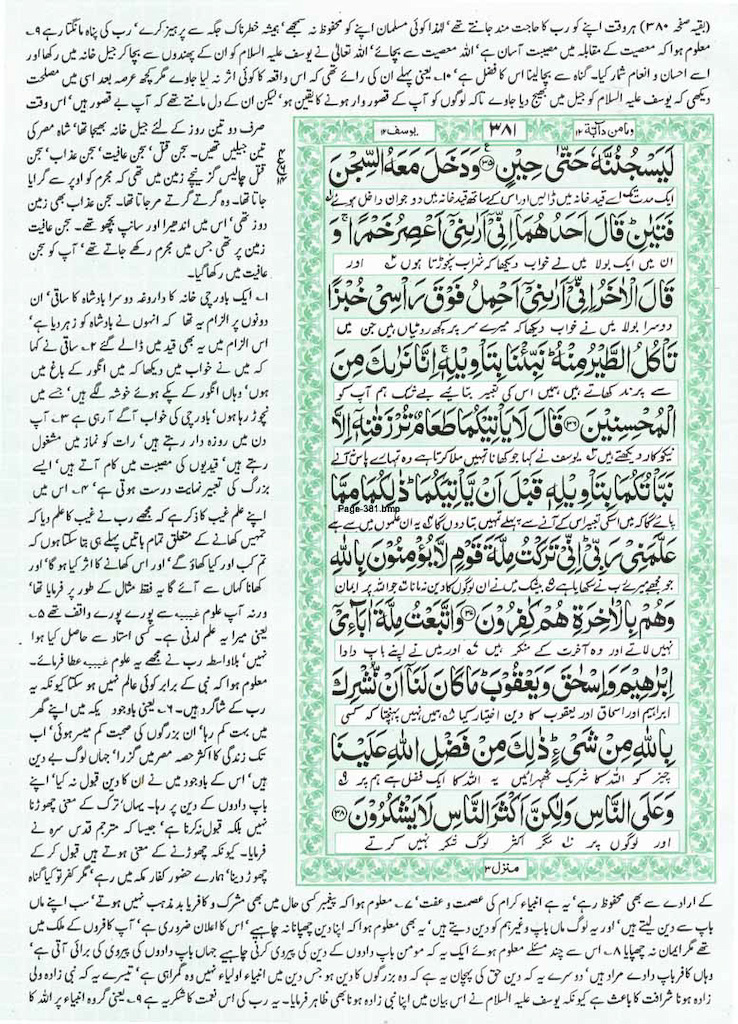 (بقیہ صفحہ ۳۸۰) ہر وقت اپنے کو رب کا حاجت مند جانتے تھے' لہٰذا کوئی مسلمان اپنے کو محفوظ نہ سمجھے' ہمیشہ خطرناک جگہ سے پرہیز کرے' رب کی پناہ مانگتا رہے ۹۔
معلوم ہوا کہ معصیت کے مقابلہ میں مصیبت آسان ہے' اللہ معصیت سے بچائے' اللہ تعالیٰ نے یوسف علیہ السلام کو ان کے پھندوں سے بچا کر جیل خانہ میں رکھا اور
اسے احسان و انعام شمار کیا۔ گناہ سے بچا لینا اس کا فضل ہے' ۱۰۔ یعنی پہلے ان کی رائے تھی کہ اس واقعہ کا کوئی اثر نہ لیا جاوے مگر کچھ عرصہ بعد اسی میں مصلحت
دیکھی کہ یوسف علیہ السلام کو جیل میں بھیج دیا جاوے تاکہ لوگوں کو آپ کے قصور وار ہونے کا یقین ہو' لیکن ان کے دل مانتے تھے کہ آپ بے قصور ہیں' اس وقت
صرف دو تین روز کے لئے جیل خانہ بھیجا تھا' شاہ مصر کی
تین جیلیں تھیں۔ سجن قتل' سجن عافیت' سجن عذاب' سجن
قتل چالیس گز نیچے زمین میں تھی کہ مجرم کو اوپر سے گرایا
جاتا تھا۔ وہ گرتے گرتے مر جاتا تھا۔ سجن عذاب بھی زمین
دوز تھی' اس میں اندھیرا اور سانپ بچھو تھے۔ سجن عافیت
زمین پر تھی جس میں مجرم رکھے جاتے تھے' آپ کو سجن
عافیت میں رکھا گیا۔
۱۔ ایک باورچی خانہ کا داروغہ دوسرا بادشاہ کا ساقی' ان
دونوں پر الزام یہ تھا کہ انہوں نے بادشاہ کو زہر دیا ہے'
اس الزام میں یہ بھی قید میں ڈالے گئے ۲۔ ساقی نے کہا
کہ میں نے خواب میں دیکھا کہ میں انگور کے باغ میں
ہوں' وہاں انگور کے پکے ہوئے خوشہ لگے ہیں' جسے میں
نچوڑ رہا ہوں' باورچی کی خواب آگے آ رہی ہے ۳۔ آپ
دن میں روزہ دار رہتے ہیں' رات کو نماز میں مشغول
رہتے ہیں' قیدیوں کی مصیبت میں کام آتے ہیں' ایسے
بزرگ کی تعبیر نہایت درست ہوتی ہے' ۴۔ اس میں
اپنے علم غیب کا ذکر ہے کہ مجھے رب نے غیب کا علم دیا کہ
تمہیں کھانے کے متعلق تمام باتیں پہلے ہی بتا سکتا ہوں کہ
تم کب اور کیا کھاؤ گے' اور اس کھانے کا اثر کیا ہو گا' اور
کھانا کہاں سے آئے گا یہ فقط مثال کے طور پر فرمایا تھا'
ورنہ آپ علوم غیبیہ سے پورے پورے واقف تھے ۵۔
یعنی میرا یہ علم لدنی ہے۔ کسی استاد سے حاصل کیا ہوا
نہیں' بلاواسطہ رب نے مجھے یہ علوم غیبیہ عطا فرمائے۔
معلوم ہوا کہ نبی کے برابر کوئی عالم نہیں ہو سکتا کیونکہ یہ
رب کے شاگرد ہیں۔ ۶۔ یعنی باوجود یکہ میں اپنے گھر
میں بہت کم رہا' ان بزرگوں کی صحبت کم میسر ہوئی' اب
تک زندگی کا اکثر حصہ مصر میں گزرا' جہاں لوگ بے دین
ہیں' اس کے باوجود میں نے ان کا دین قبول نہ کیا' اپنے
باپ دادوں کے دین پر رہا۔ یہاں' ترک کے معنی چھوڑنا
نہیں بلکہ قبول نہ کرنا ہے' جیسا کہ مترجم قدس سرہ نے
فرمایا۔ کیونکہ چھوڑنے کے معنی ہوتے ہیں قبول کر کے
چھوڑ دینا' ہمارے حضور کفار مکہ میں رہے' مگر کفر تو کیا گناہ
وما من دآبۃ ۱۲
۳۸۱
یوسف ۱۲
لَيَسْجُنُنَّهٗ حَتّٰى حِيْنٍ ۟۳۵ وَدَخَلَ مَعَهُ السِّجْنَ
ایک مدت تک اسے قید خانہ میں ڈالیں اور اس کے ساتھ قید خانہ میں دو جوان داخل ہوئے
فَتَيٰنِ ؕ قَالَ اَحَدُهُمَاۤ اِنِّىْۤ اَرٰىنِىْۤ اَعْصِرُ خَمْرًا ۚ وَ
ان میں ایک بولا میں نے خواب دیکھا کہ شراب نچوڑتا ہوں اور
قَالَ الْاٰخَرُ اِنِّىْۤ اَرٰىنِىْۤ اَحْمِلُ فَوْقَ رَاْسِىْ خُبْزًا
دوسرا بولا میں نے خواب دیکھا کہ میرے سر پر کچھ روٹیاں ہیں جن میں
تَاْكُلُ الطَّيْرُ مِنْهُ ؕ نَبِّئْنَا بِتَاْوِيْلِهٖ ۚ اِنَّا نَرٰىكَ مِنَ
سے پرند کھاتے ہیں ہمیں اس کی تعبیر بتائیے بے شک ہم آپ کو
الْمُحْسِنِيْنَ ۟۳۶ قَالَ لَا يَاْتِيْكُمَا طَعَامٌ تُرْزَقٰنِهٖۤ اِلَّا
نیکو کار دیکھتے ہیں یوسف نے کہا جو کھانا تمہیں ملا کرتا ہے وہ تمہارے پاس آنے
نَبَّاْتُكُمَا بِتَاْوِيْلِهٖ قَبْلَ اَنْ يَّاْتِيَكُمَا ؕ ذٰلِكُمَا مِمَّا
Page-381.bmp
پائے گا کہ میں اسکی تعبیر اس کے آنے سے پہلے تمہیں بتا دوں گا یہ ان علموں میں سے ہے
عَلَّمَنِىْ رَبِّىْ ؕ اِنِّىْ تَرَكْتُ مِلَّةَ قَوْمٍ لَّا يُؤْمِنُوْنَ بِاللّٰهِ
جو مجھے میرے رب نے سکھایا ہے بیشک میں نے ان لوگوں کا دین نہ مانا جو اللہ پر ایمان
وَهُمْ بِالْاٰخِرَةِ هُمْ كٰفِرُوْنَ ۟۳۷ وَاتَّبَعْتُ مِلَّةَ اٰبَآءِىْۤ
نہیں لاتے اور وہ آخرت کے منکر ہیں اور میں نے اپنے باپ دادا
اِبْرٰهِيْمَ وَاِسْحٰقَ وَيَعْقُوْبَ ؕ مَا كَانَ لَنَاۤ اَنْ نُّشْرِكَ
ابراہیم اور اسحاق اور یعقوب کا دین اختیار کیا ہمیں نہیں پہنچتا کہ کسی
بِاللّٰهِ مِنْ شَىْءٍ ؕ ذٰلِكَ مِنْ فَضْلِ اللّٰهِ عَلَيْنَا
چیز کو اللہ کا شریک ٹھہرائیں یہ اللہ کا ایک فضل ہے ہم پر
وَعَلَى النَّاسِ وَلٰكِنَّ اَكْثَرَ النَّاسِ لَا يَشْكُرُوْنَ ۟۳۸
اور لوگوں پر مگر اکثر لوگ شکر نہیں کرتے
منزل ۳
کے ارادے سے بھی محفوظ رہے' یہ ہے انبیاء کرام کی عصمت و عفت' ۷۔ معلوم ہوا کہ پیغمبر کسی حال میں بھی مشرک و کافر یا بد مذہب نہیں ہوتے' سب اپنے ماں
باپ سے دین لیتے ہیں' اور یہ لوگ ماں باپ وغیرہم کو دین دیتے ہیں' یہ بھی معلوم ہوا کہ اپنا دین چھپانا نہ چاہیے' اس کا اعلان ضروری ہے' آپ کافروں کے ملک میں
تھے مگر ایمان نہ چھپایا ۸۔ اس سے چند مسئلے معلوم ہوئے ایک یہ کہ مومن باپ دادوں کے دین کی پیروی کرنی چاہیے جہاں باپ دادوں کی پیروی کی برائی آتی ہے'
وہاں کافر باپ دادے مراد ہیں' دوسرے یہ کہ دین حق کی پہچان یہ ہے کہ وہ بزرگوں کا دین ہو جس دین میں انبیاء اولیاء نہیں وہ گمراہی ہے' تیسرے یہ کہ نبی زادہ ولی
زادہ ہونا شرافت کا باعث ہے کیونکہ یوسف علیہ السلام نے اس بیان میں اپنا نبی زادہ ہونا بھی ظاہر فرمایا۔ یہ رب کی اس نعمت کا شکریہ ہے ۹۔ یعنی گروہ انبیاء پر اللہ کا